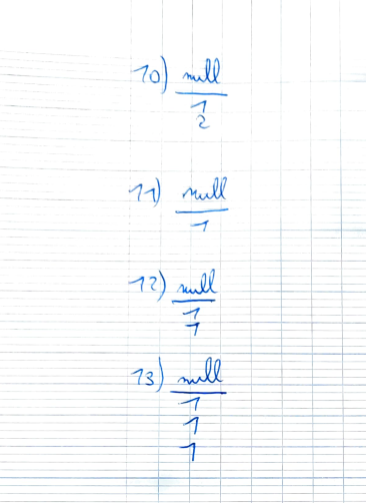 10) null
1
2
11) null
1
12) null
1
1
13) null
1
1
1